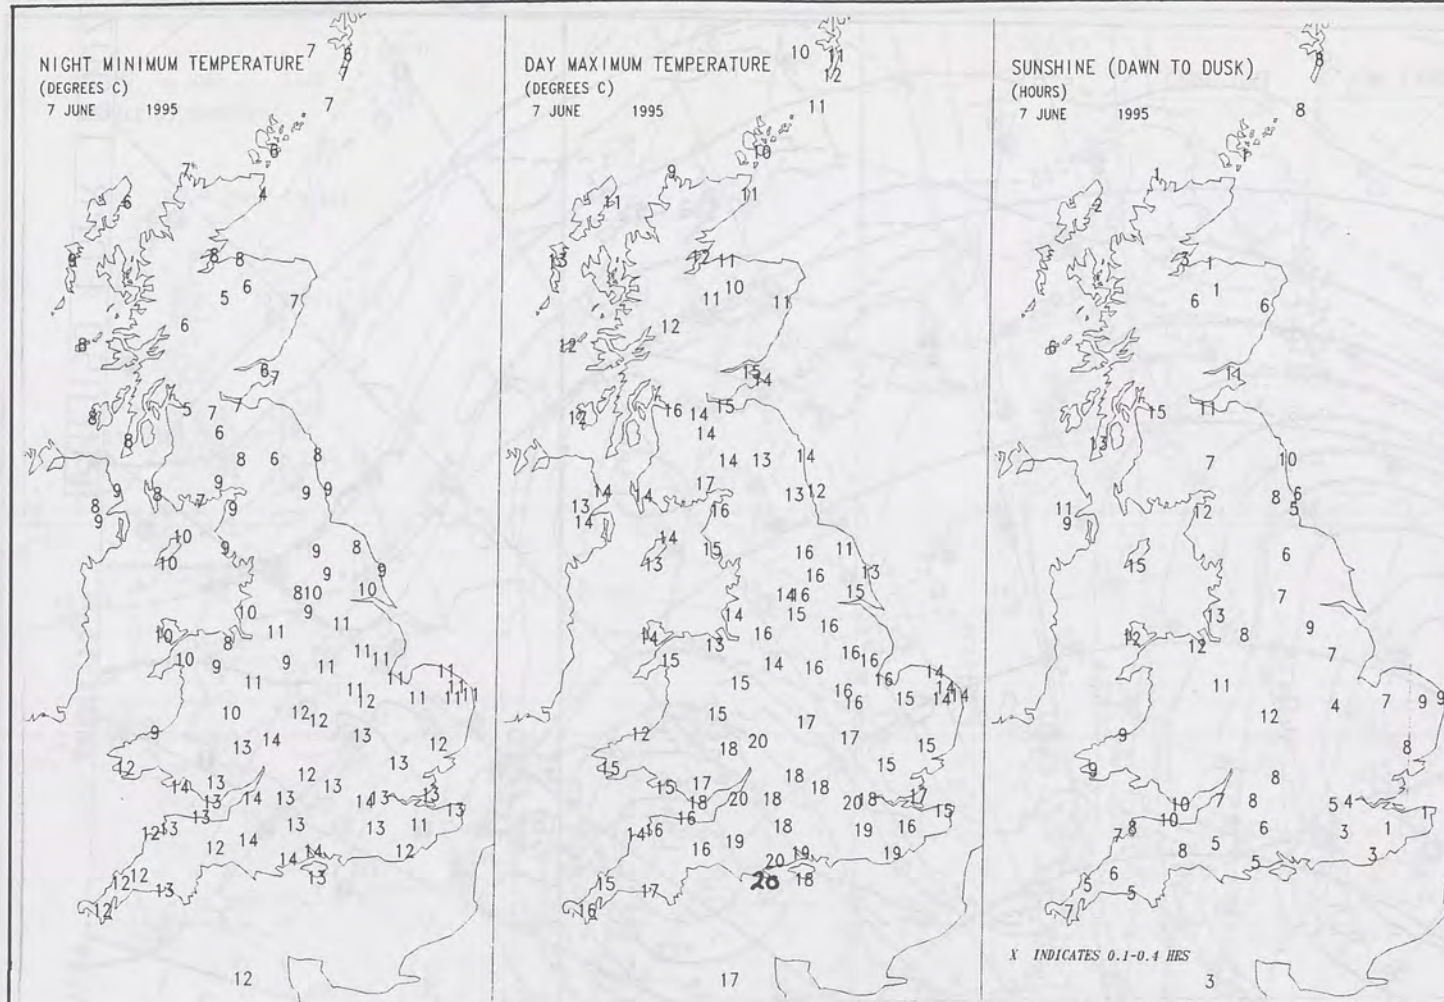 NIGHT MINIMUM TEMPERATURE
(DEGREES C)
7 JUNE 1995
7 6
7
7
6
7
4
6
9 8 8
6
5 7
6
8
6
7
5 7 7
8 6
8
8 6 8
9
8 9 7 9 9
8 9
9
10 9 9 8
10 9 9
8 10 10
9
10 11
10 8 11
10 9 9 11 11 11
11 11 11
11 12 11 11 11
10 12 12
9 13 14 13 12
12 13
14 13 12 13
13 14 13 14 13 13
13 13
12 13 14 13 13 11
12 14 14 12
12 12 13 13
12
12
DAY MAXIMUM TEMPERATURE
(DEGREES C)
7 JUNE 1995
10 11
12
11
10
9
11
11
13 12 11
10
11 11
12
12
15
14
12 16 14 15
14
14 13 14
17
14 14 13 12
13 16
14
14 15 16 11
13 16 13
14 16 15
14 15
14 16 16
13
15 14 16 16 16 14
15 16 16 15 14 14 14
15 17 16
12 18 20 17 15
15 15
15 17 18 18
18 20 18 20 18 17
16 15
14 16 18 19 16
16 19 20 19 19
15 17 20 18
16
17
SUNSHINE (DAWN TO DUSK)
(HOURS)
7 JUNE 1995
8
8
1
2
3 1
1
6 6
6
11
15 11
13
7 10
8 6
11 12 5
9
15 6
7
13
12 12 8 9
7
11 4 7 9 9
12
9 8
9 8
10 7 8 5 4
10 1
7 8 6 3 1
8 5 5 3
5 6 5
7
X INDICATES 0.1-0.4 HRS
3